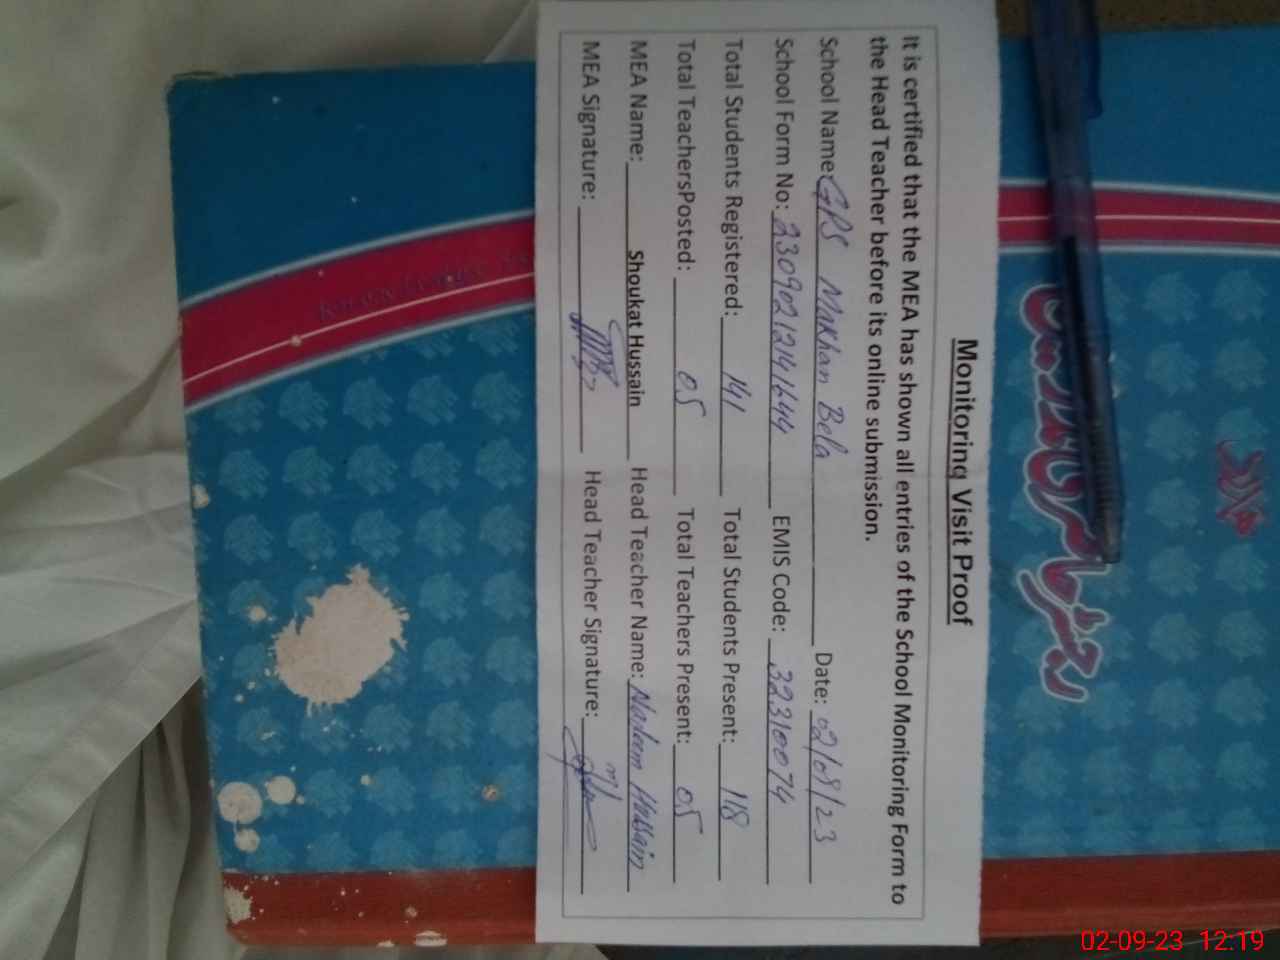 Monitoring Visit Proof
It is certified that the MEA has shown all entries of the School Monitoring Form to
the Head Teacher before its online submission.
School Name: GPS Makhan Bela Date: 02/08/23
School Form No: 23090212141644 EMIS Code: 32310074
Total Students Registered: 141 Total Students Present: 118
Total TeachersPosted: 05 Total Teachers Present: 05
MEA Name: Shoukat Hussain Head Teacher Name: Nadeem Hussain
MEA Signature: Head Teacher Signature:
رجسٹر حاضری مدرسین
02-09-23 12:19